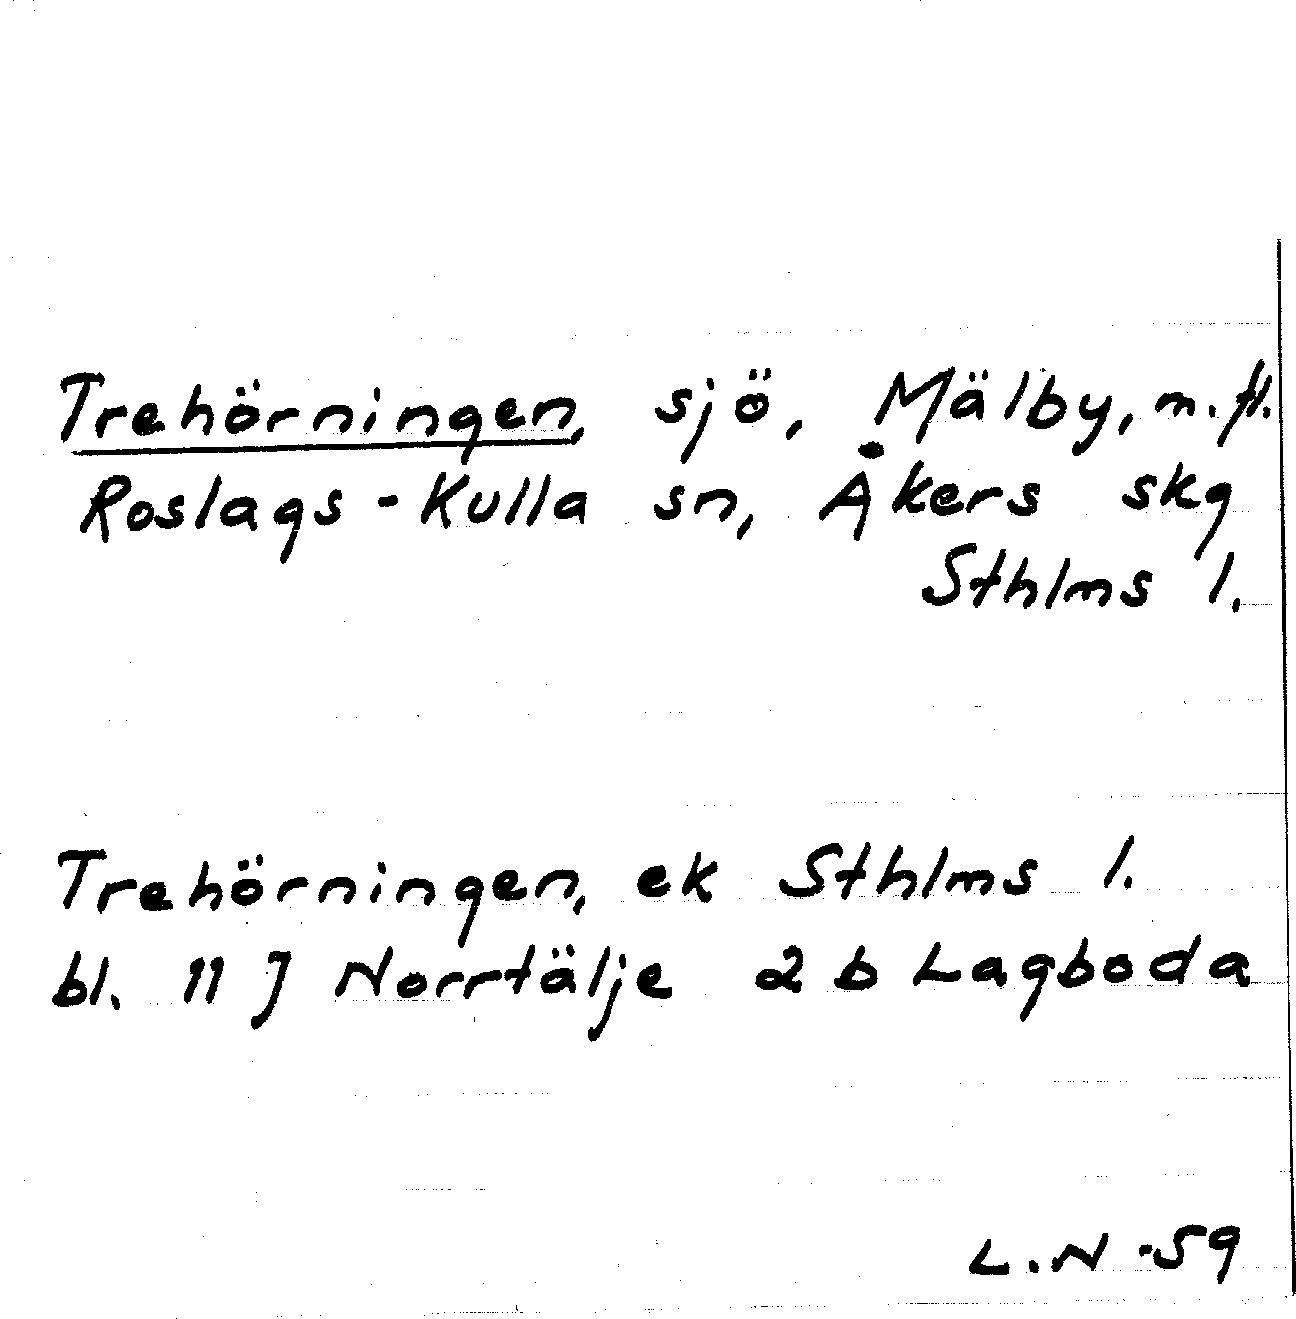 Trehörningen, sjö, Mälby, m.fl.
Roslags-Kulla sn, Åkers skg
Sthlms l.
Trehörningen, ek Sthlms l.
bl. 11 J Norrtälje 2 b Lagboda
L.N -59